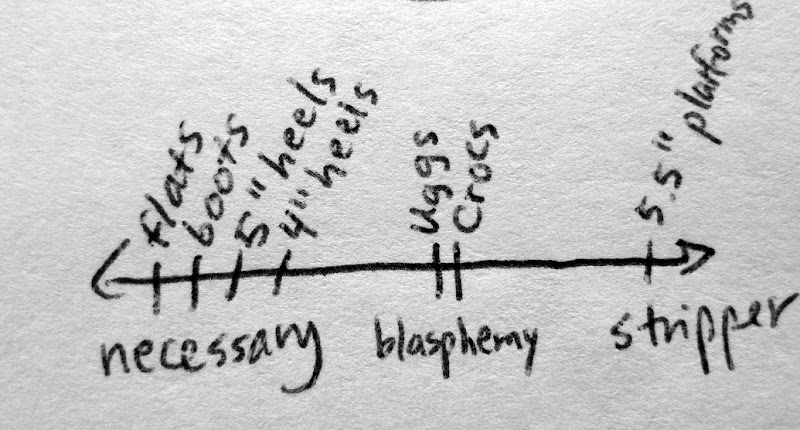 flats
boots
5" heels
4" heels
uggs
crocs
5.5" platforms
necessary
blasphemy
stripper